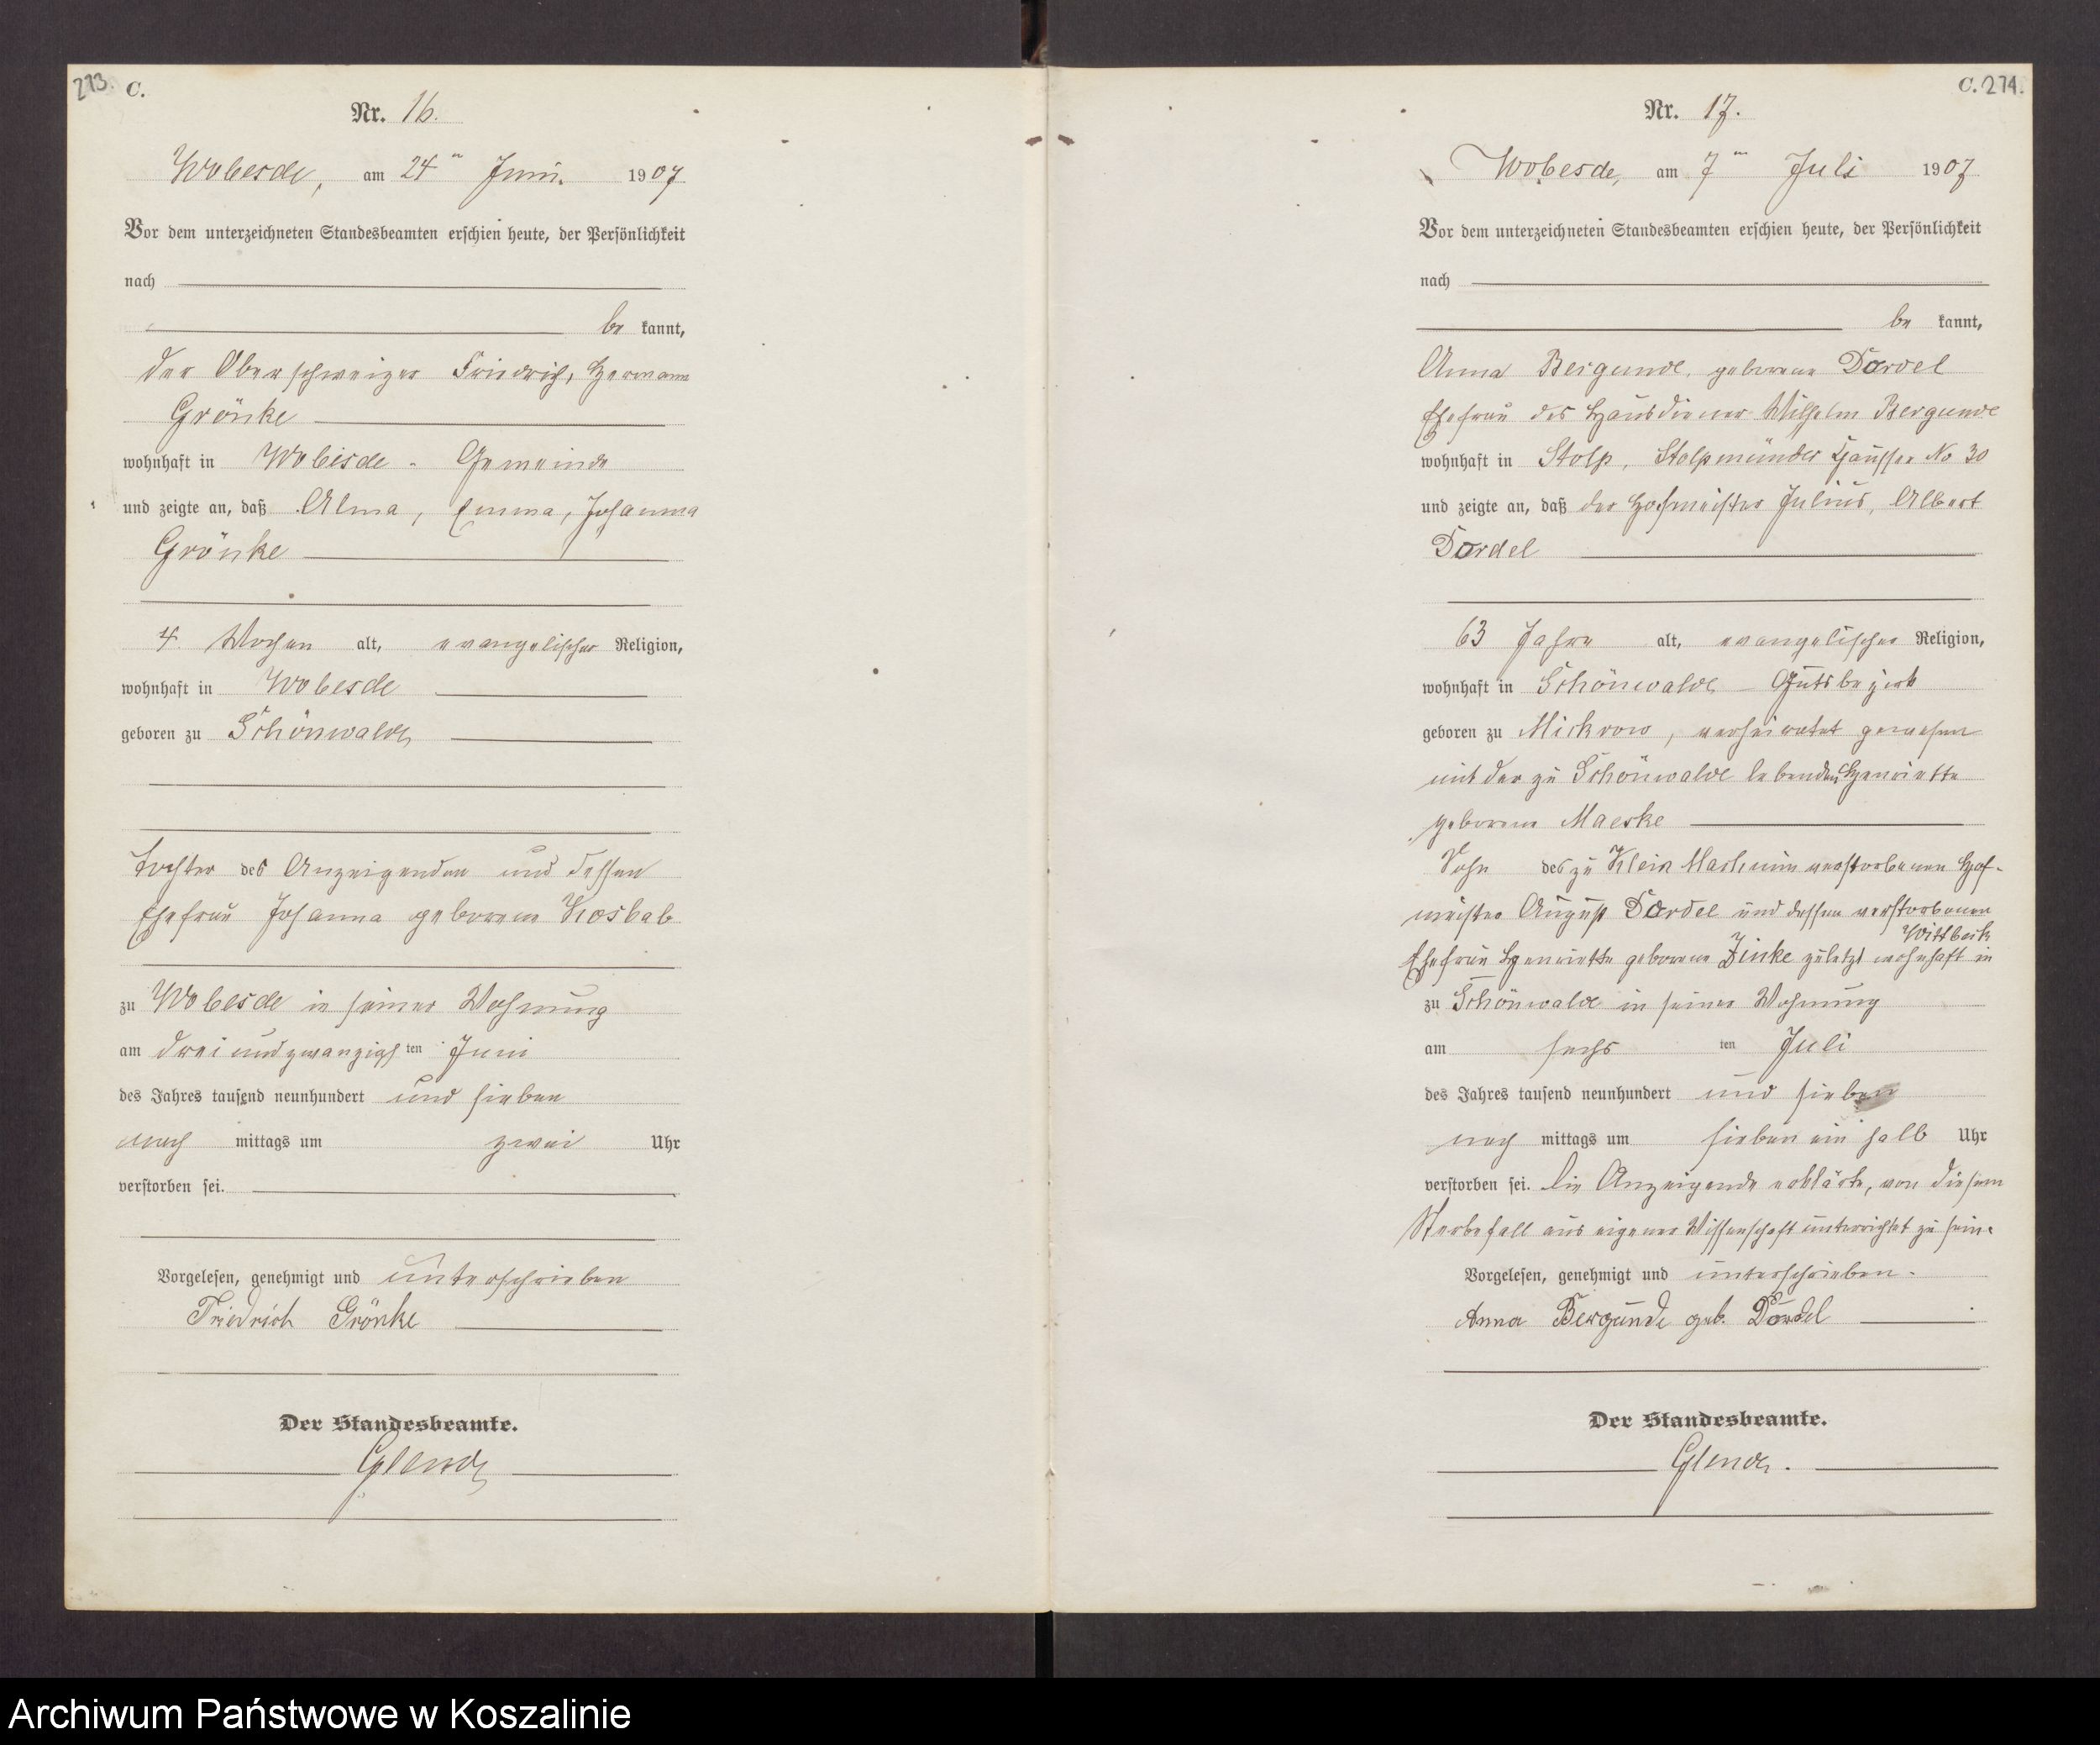 273. C.
Nr. 16.
Wobesde, am 24ⁿ Juni 1907
Vor dem unterzeichneten Standesbeamten erschien heute, der Persönlichkeit
nach
be kannt,
der Oberschweizer Friedrich, Hermann
Grönke
wohnhaft in Wobesde - Gemeinde
und zeigte an, daß Alma, Emma, Johanna
Grönke
4 Wochen alt, evangelischer Religion,
wohnhaft in Wobesde
geboren zu Schönwalde
Tochter des Anzeigenden und dessen
Ehefrau Johanna geborene Kosbab
zu Wobesde in seiner Wohnung
am dreiundzwanzigsten Juni
des Jahres tausend neunhundert und sieben
nach mittags um zwei Uhr
verstorben sei.
Vorgelesen, genehmigt und unterschrieben
Friedrich Grönke
Der Standesbeamte.
Glende
C. 274.
Nr. 17.
Wobesde, am 7ᵗᵉⁿ Juli 1907
Vor dem unterzeichneten Standesbeamten erschien heute, der Persönlichkeit
nach
be kannt,
Anna Bergunde, geborene Dordel
Ehefrau des Hausdiener Wilhelm Bergunde
wohnhaft in Stolp, Stolpmünder Chaussee No 30
und zeigte an, daß der Hofmeister Julius, Albert
Dordel
63 Jahre alt, evangelischer Religion,
wohnhaft in Schönwalde - Gutsbezirk
geboren zu Mickrow, verheiratet gewesen
mit der zu Schönwalde lebenden Henriette
geborene Maeske
Sohn des zu Klein Machmin verstorbenen Hof-
meister August Dordel und dessen verstorbenen
Wittbeck
Ehefrau Henriette geborene Zinke zuletzt wohnhaft in
zu Schönwalde in seiner Wohnung
am sechs ten Juli
des Jahres tausend neunhundert und sieben
nach mittags um sieben ein halb Uhr
verstorben sei. Die Anzeigende erklärte, von diesem
Sterbefall aus eigener Wissenschaft unterrichtet zu sein.
Vorgelesen, genehmigt und unterschrieben.
Anna Bergunde geb. Dordel
Der Standesbeamte.
Glende.
Archiwum Państwowe w Koszalinie